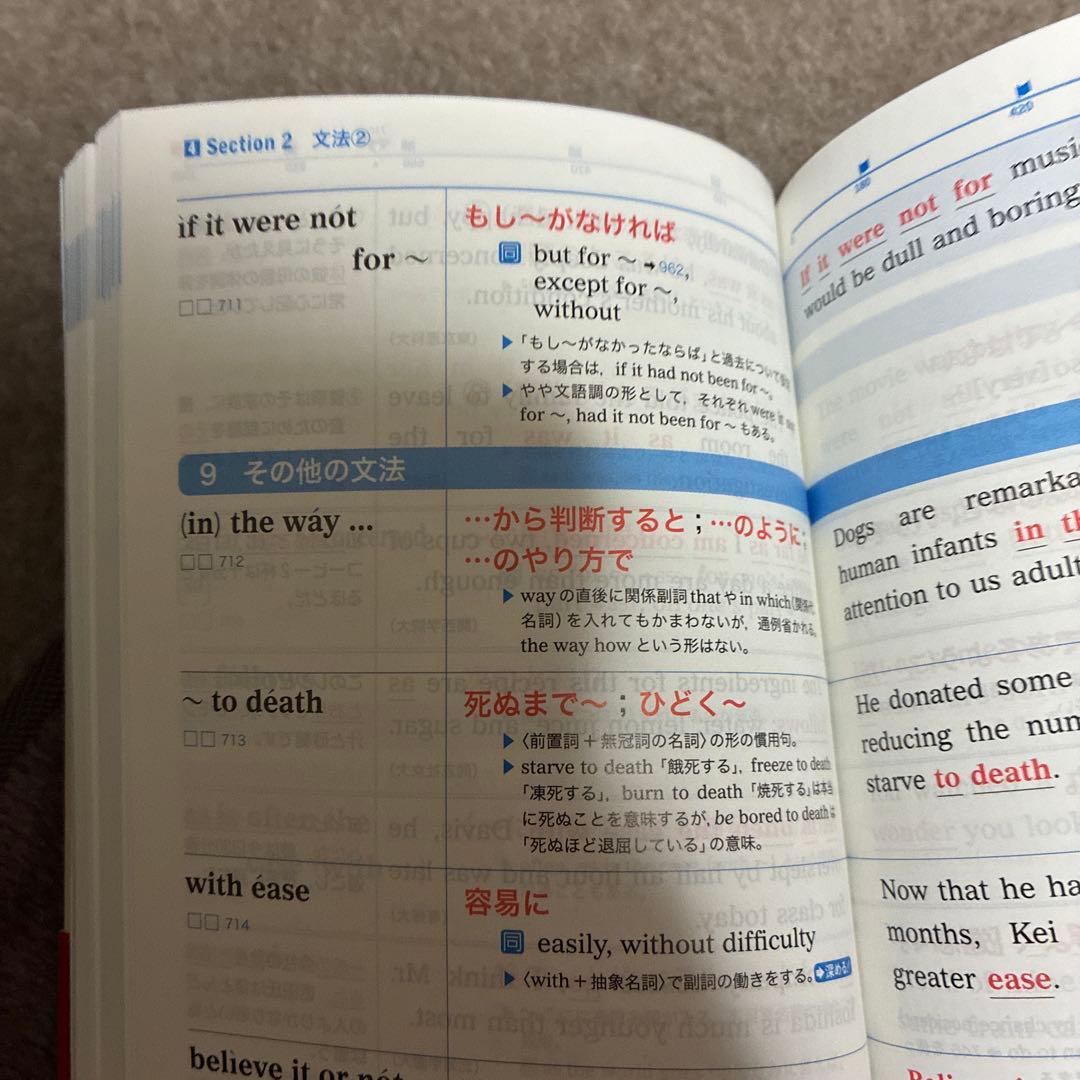 4 Section 2 文法②
if it were nót
for ～
□□ 711
もし～がなければ
同 but for ～ ➞962,
except for ～,
without
▶「もし～がなかったならば」と過去について
する場合は，if it had not been for ～。
▶ やや文語調の形として，それぞれ were it not
for ～, had it not been for ～ もある。
9 その他の文法
(in) the wáy ...
□□ 712
…から判断すると；…のように；
…のやり方で
▶ way の直後に関係副詞 that や in which (関係代
名詞) を入れてもかまわないが，通例省かれる。
the way how という形はない。
～ to déath
□□ 713
死ぬまで～；ひどく～
▶〈前置詞＋無冠詞の名詞〉の形の慣用句。
▶ starve to death「餓死する」，freeze to death
「凍死する」，burn to death「焼死する」は本当
に死ぬことを意味するが，be bored to death は
「死ぬほど退屈している」の意味。
with éase
□□ 714
容易に
同 easily, without difficulty
▶〈with＋抽象名詞〉で副詞の働きをする。➡深める!
believe it or nót
380
420
If it were not for music
would be dull and boring
Dogs are remarka
human infants in th
attention to us adul
He donated some
reducing the num
starve to death.
Now that he ha
months, Kei
greater ease.